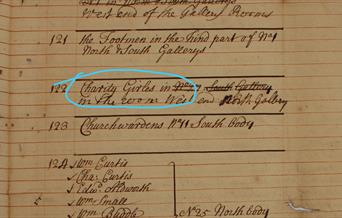 West end of the Gallery Rooms
121 the Footmen in the hind part of No 1
North & South Gallerys
122 Charity Girles in South Gallery
in the room West end North Gallery
123 Churchwardens No 11 South body
124 Wm Curtis
Cha: Curtis
Edwd Aldworth
5 Wm Small
Wm Biddle
No 25 North body